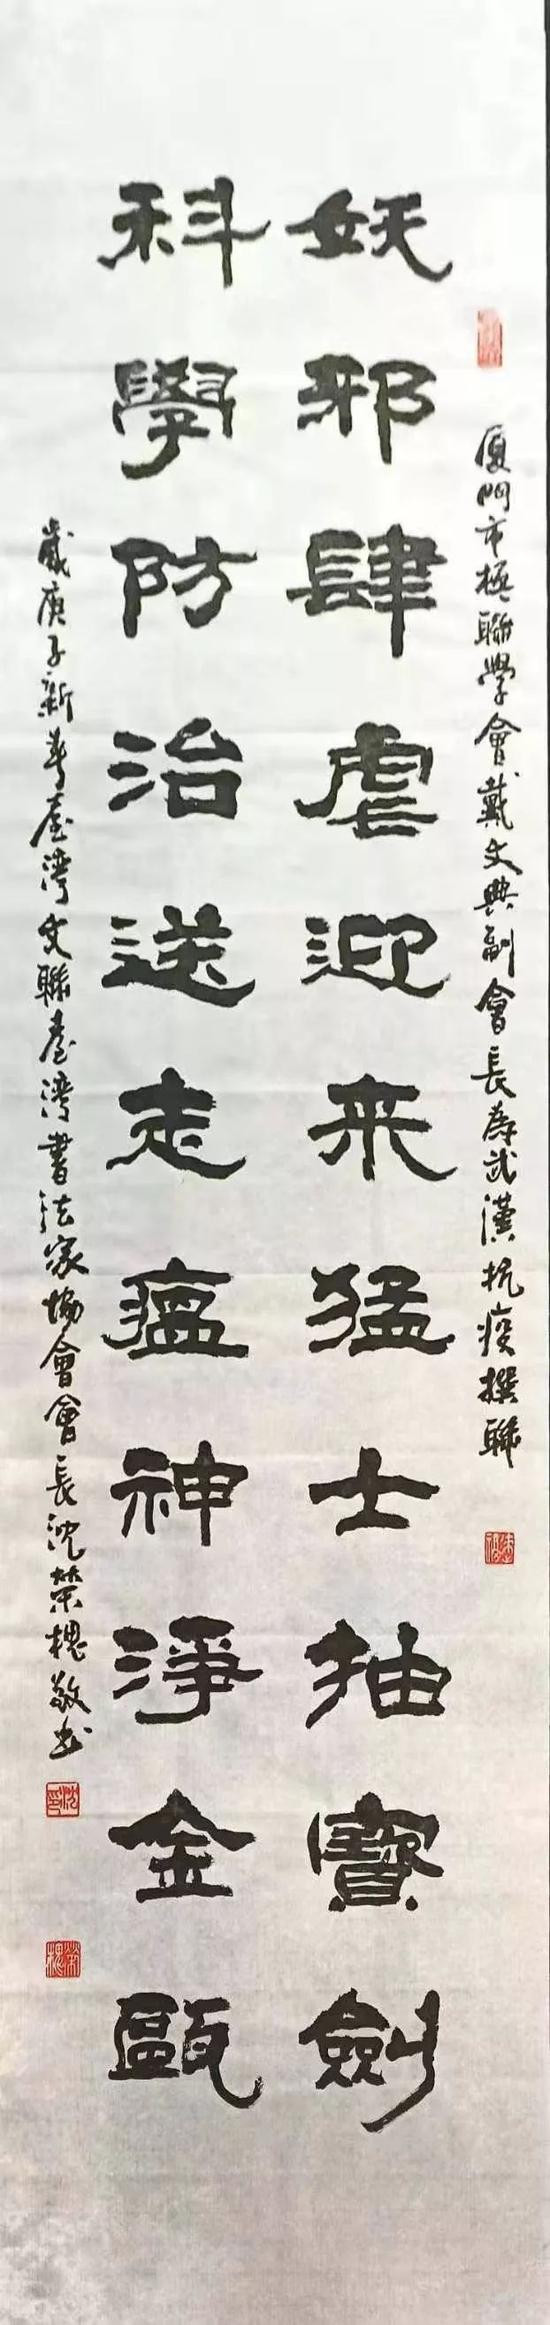 厦門市楹聯學會戴文典副會長為武漢抗疫撰聯
妖邪肆虐迎来猛士抽寶劍
科學防治送走瘟神淨金甌
歲庚子新春臺灣文聯臺灣書法家協會會長沈榮槐敬书